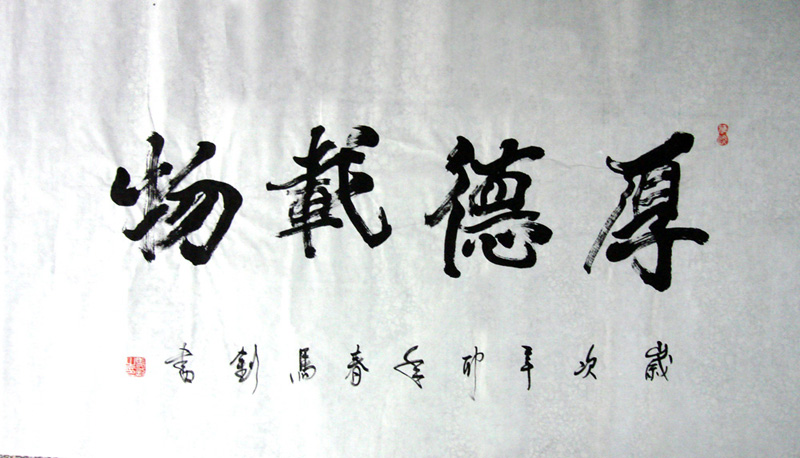 厚德載物
歲次辛卯年春馬釗書